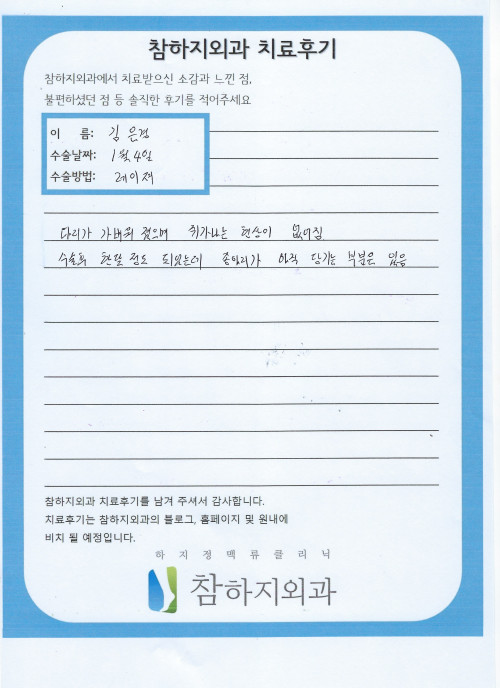 참하지외과 치료후기
참하지외과에서 치료받으신 소감과 느낀 점,
불편하셨던 점 등 솔직한 후기를 적어주세요
이 름: 김은경
수술날짜: 1월 4일
수술방법: 레이져
다리가 가벼워 졌으며 쥐가나는 현상이 없어짐
수술후 한달 정도 되었는데 종아리가 아직 당기는 부분은 있음
참하지외과 치료후기를 남겨 주셔서 감사합니다.
치료후기는 참하지외과의 블로그, 홈페이지 및 원내에
비치 될 예정입니다.
하지정맥류클리닉
참하지외과